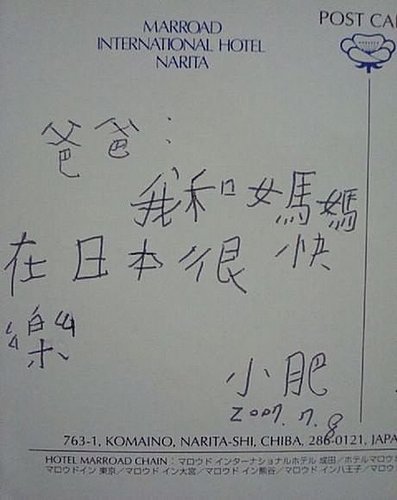 MARROAD
INTERNATIONAL HOTEL
NARITA
POST CA
爸爸：
我和女媽媽
在日本很快
樂
小肥
2007.7.8
763-1, KOMAINO, NARITA-SHI, CHIBA, 286-0121, JAPA
HOTEL MARROAD CHAIN : マロウド インターナショナルホテル 成田／ホテルマロウ
マロウドイン 東京／マロウド イン大宮／マロウド イン熊谷／マロウド イン八王子／マロウ